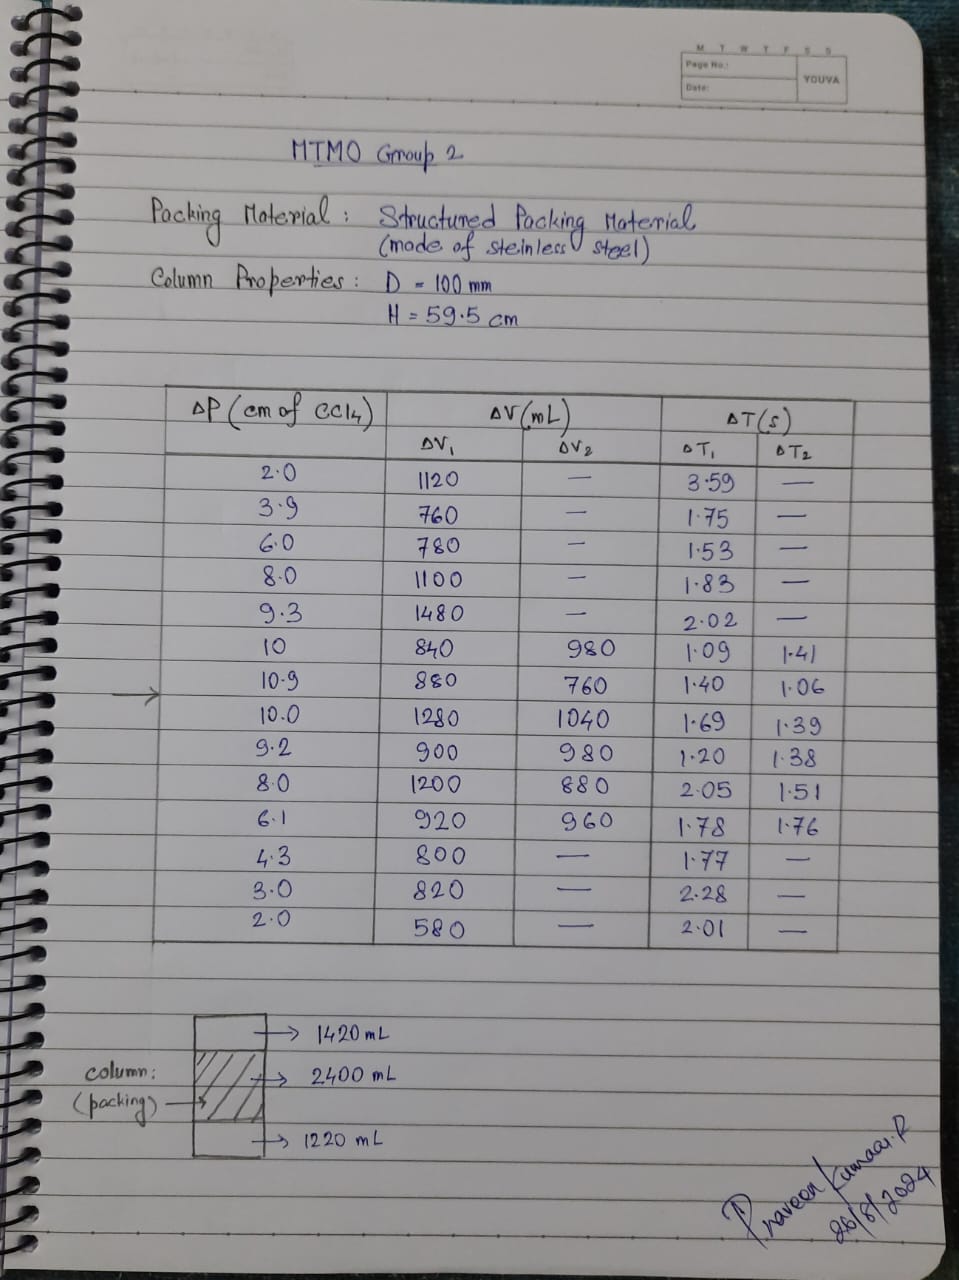 M T W T F S S
Page No.:
YOUVA
Date:
MTMO Group 2
Packing Material : Structured Packing Material
(made of steinless steel)
Column Properties : D = 100 mm
H = 59.5 cm
ΔP (cm of CCl4) ΔV (mL) ΔT(s)
ΔV1 ΔV2 ΔT1 ΔT2
2.0 1120 — 3.59 —
3.9 760 — 1.75 —
6.0 780 — 1.53 —
8.0 1100 — 1.83 —
9.3 1480 — 2.02 —
10 840 980 1.09 1.41
→ 10.9 880 760 1.40 1.06
10.0 1280 1040 1.69 1.39
9.2 900 980 1.20 1.38
8.0 1200 880 2.05 1.51
6.1 920 960 1.78 1.76
4.3 800 — 1.77 —
3.0 820 — 2.28 —
2.0 580 — 2.01 —
→ 1420 mL
column: → 2400 mL
(packing) →
→ 1220 mL
Praveen Kumaar.R
26/8/2024